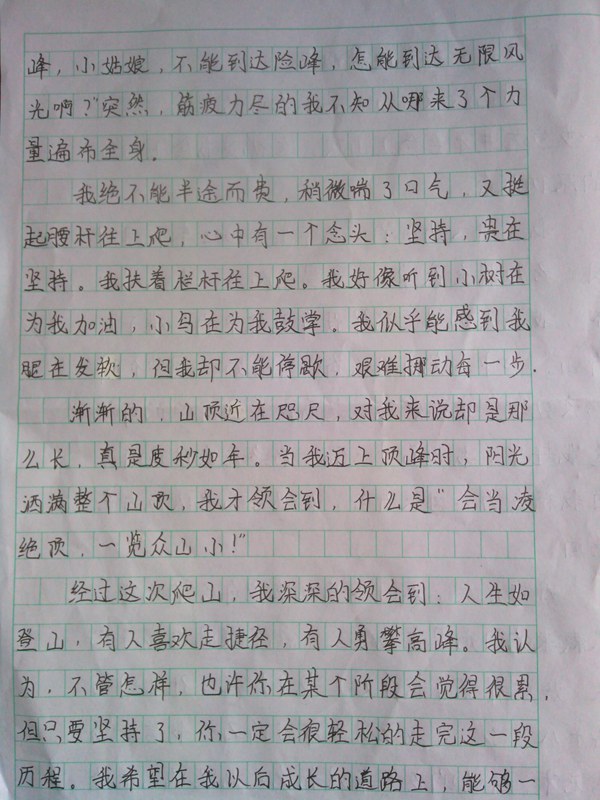 峰，小姑娘，不能到达险峰，怎能到达无限风
光啊？”突然，筋疲力尽的我不知从哪来了个力
量遍布全身．
我绝不能半途而费，稍微喘了口气，又挺
起腰杆往上爬，心中有一个念头：坚持，贵在
坚持。我扶着栏杆往上爬。我好像听到小树在
为我加油，小鸟在为我鼓掌。我似乎能感到我
腿在发软，但我却不能停歇，艰难挪动每一步．
渐渐的，山顶近在咫尺，对我来说却是那
么长，真是度秒如年。当我迈上顶峰时，阳光
洒满整个山顶，我才领会到，什么是“会当凌
绝顶，一览众山小！”
经过这次爬山，我深深的领会到：人生如
登山，有人喜欢走捷径，有人勇攀高峰。我认
为，不管怎样，也许你在某个阶段会觉得很累，
但只要坚持了，你一定会很轻松的走完这一段
历程。我希望在我以后成长的道路上，能够一